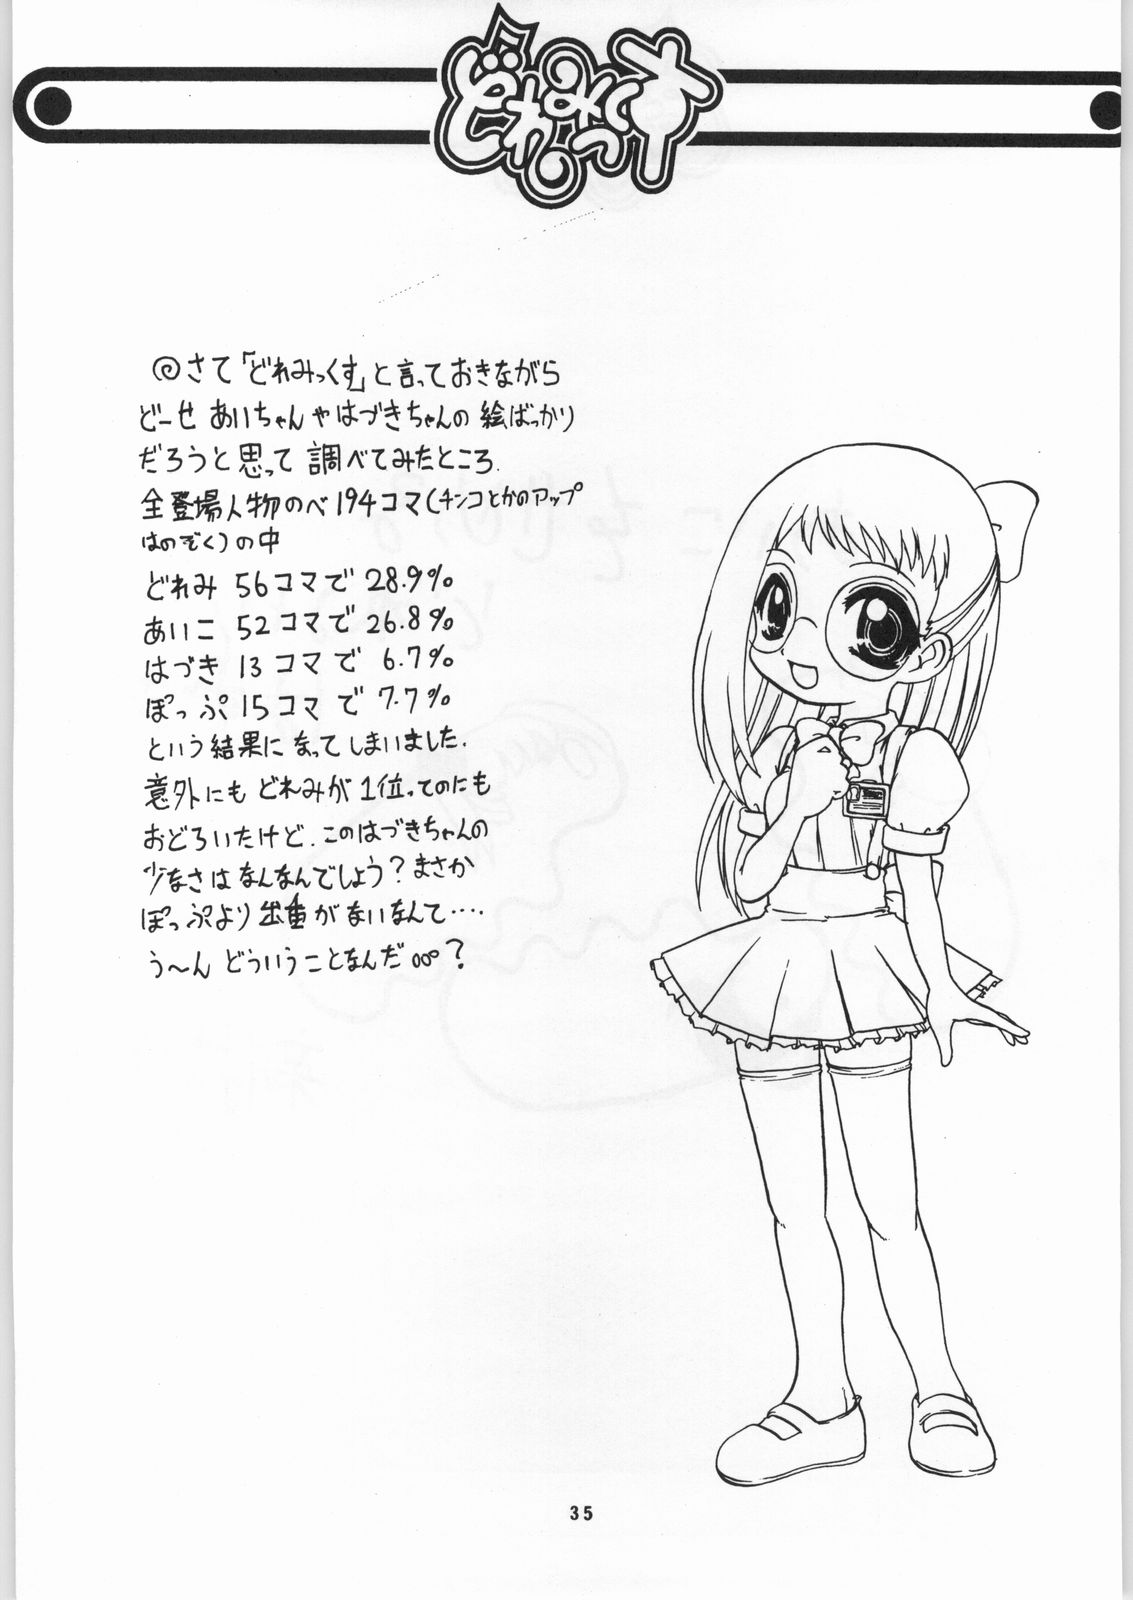 どれみっくす
◎さて「どれみっくす」と言っておきながら
どーせ あいちゃんやはづきちゃんの 絵ばっかり
だろうと思って 調べてみたところ.
全登場人物のべ194コマ(チンコとかのアップ
はのぞく)の中
どれみ 56コマで 28.9%
あいこ 52コマで 26.8%
はづき 13コマで 6.7%
ぽっぷ 15コマで 7.7%
という結果になってしまいました.
意外にも どれみが 1位ってのにも
おどろいたけど. このはづきちゃんの
少なさはなんなんでしょう? まさか
ぽっぷより 出番がないなんて····
う〜ん どういうことなんだ。。。?
35